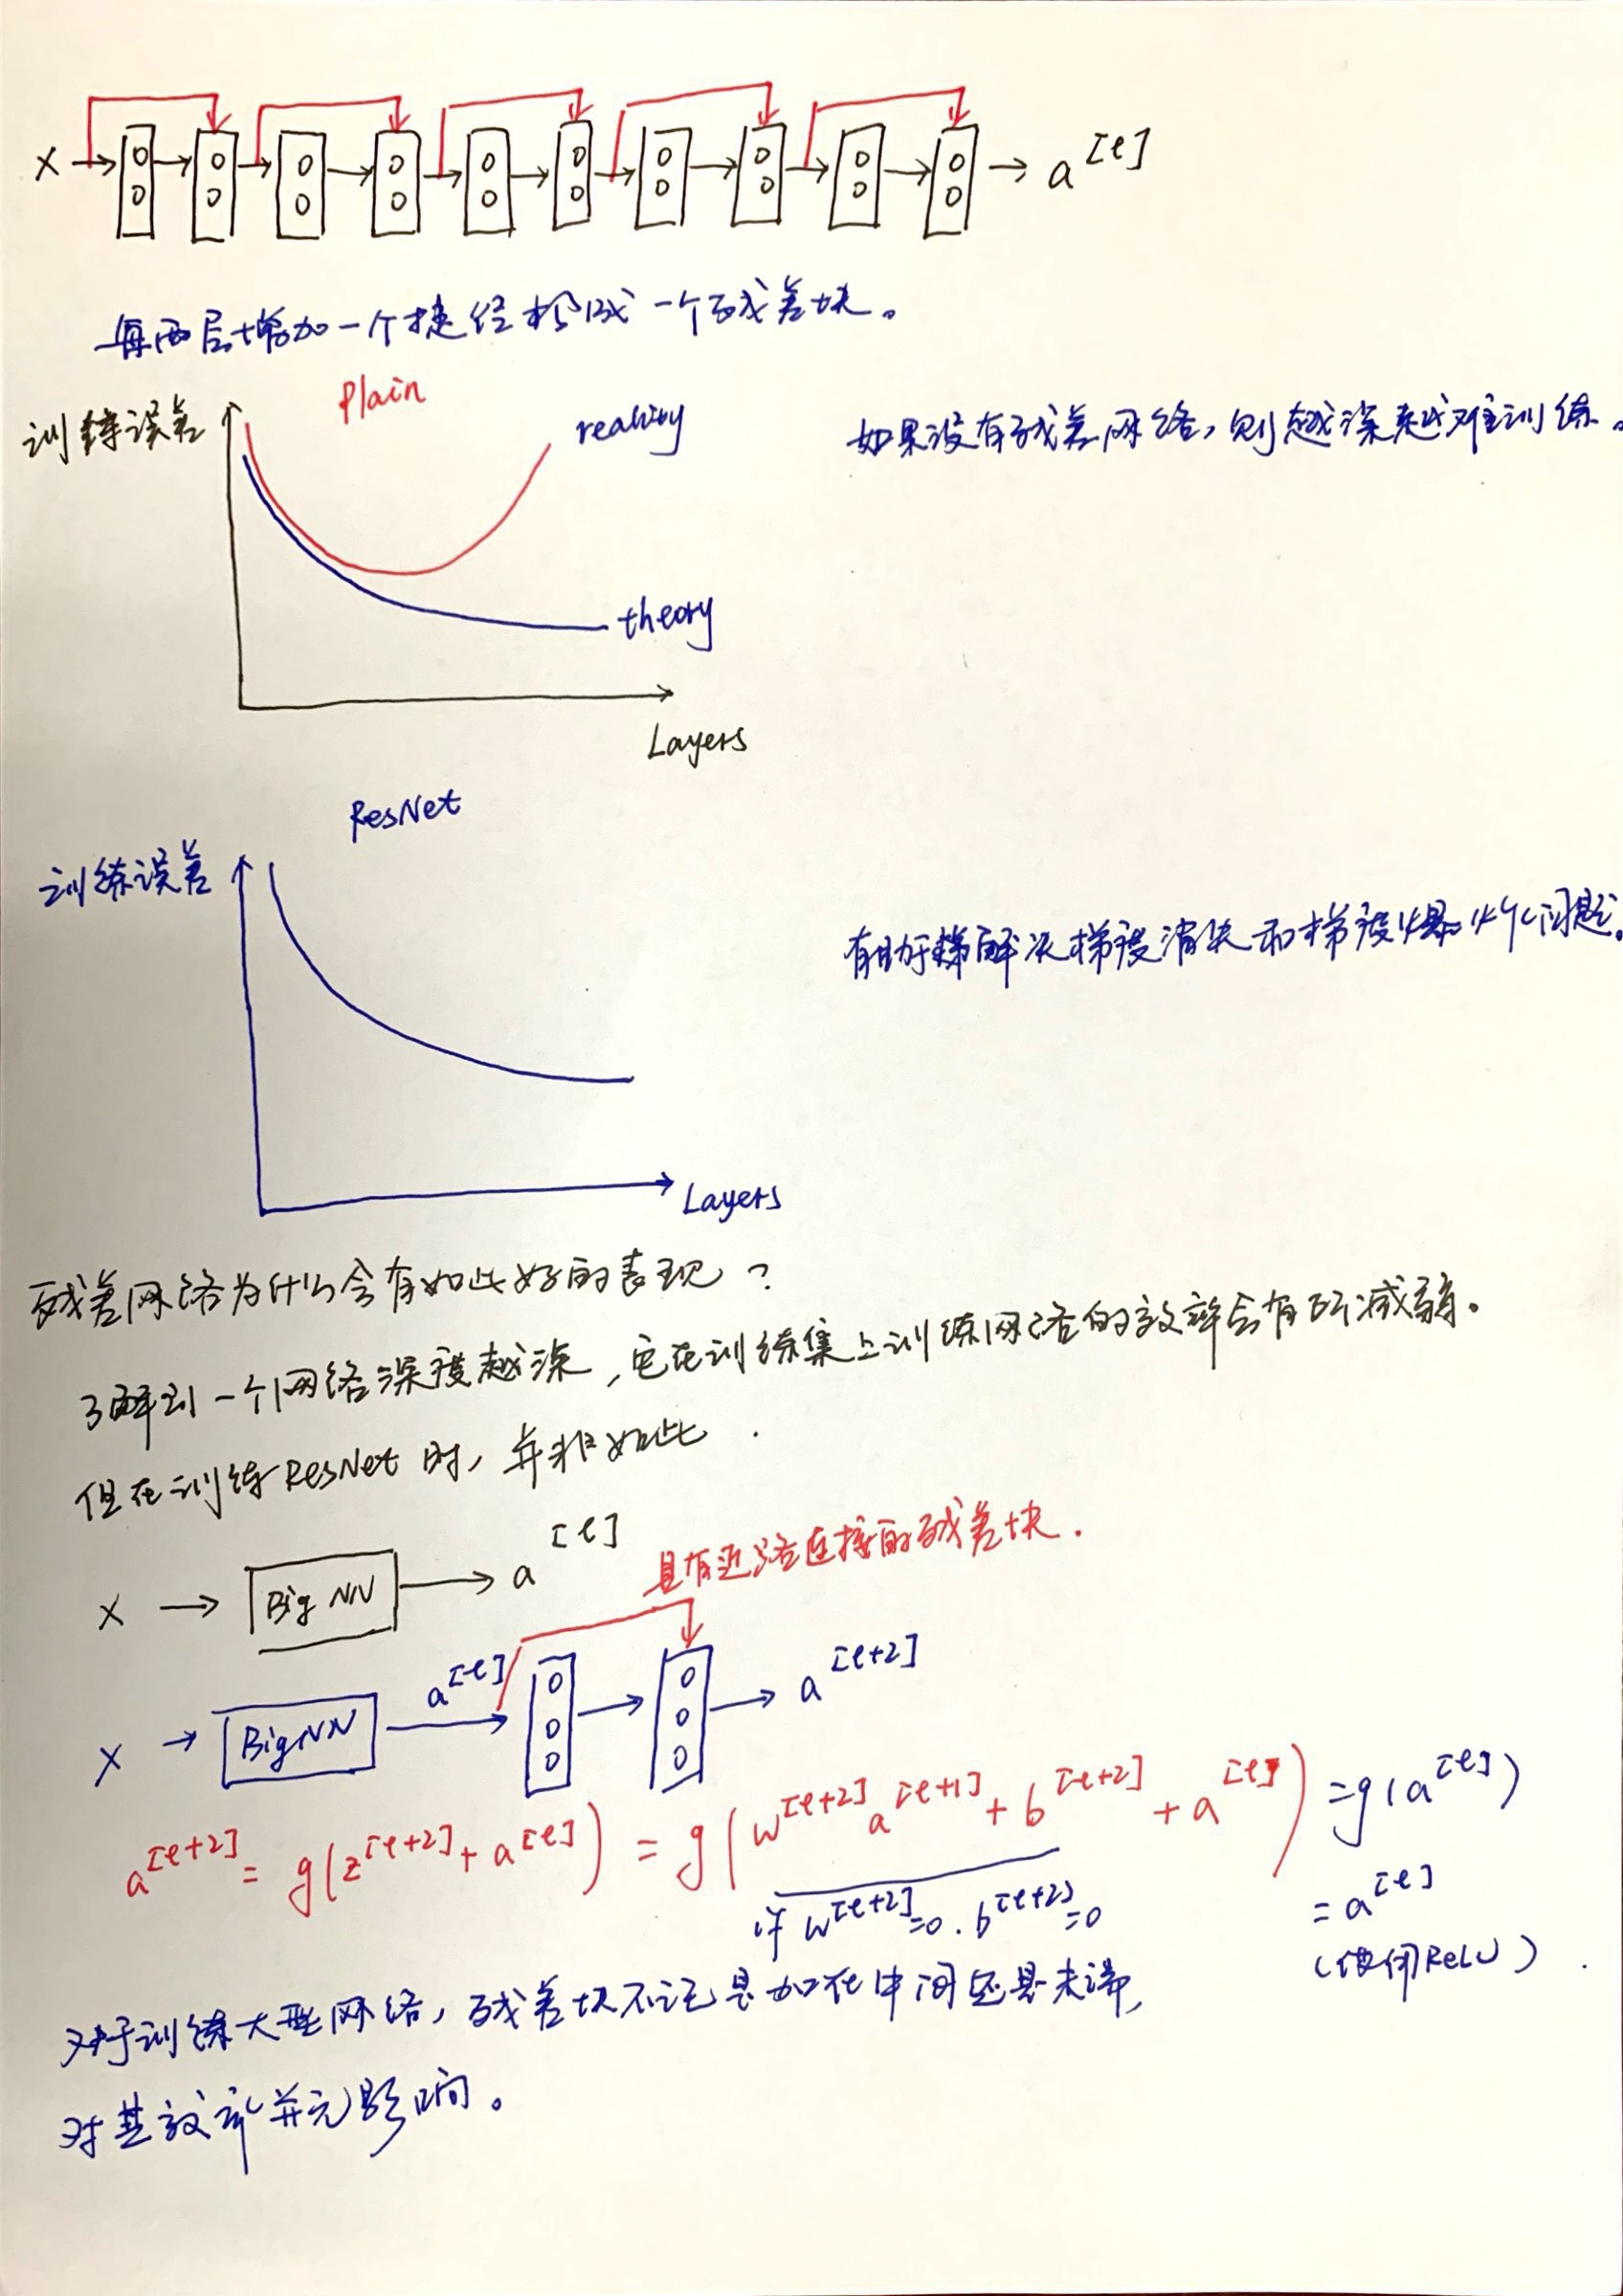 X → → → → → → → → → → → a[l]
每两层增加一个捷径构成一个残差块。
训练误差
Plain
reality
如果没有残差网络,则越深越难训练。
theory
Layers
ResNet
训练误差
有助于解决梯度消失和梯度爆炸问题。
Layers
残差网络为什么会有如此好的表现?
了解到一个网络深度越深,它在训练集上训练网络的效率会有所减弱。
但在训练ResNet时,并非如此.
X → Big NN → a[l]
具有近路连接的残差块.
X → BigNN a[l] → → → a[l+2]
a[l+2] = g(z[l+2] + a[l]) = g(w[l+2] a[l+1] + b[l+2] + a[l]) = g(a[l])
if w[l+2]=0. b[l+2]=0
= a[l]
(使用ReLU).
对于训练大型网络,残差块不论是加在中间还是末端,
对其效率并无影响。